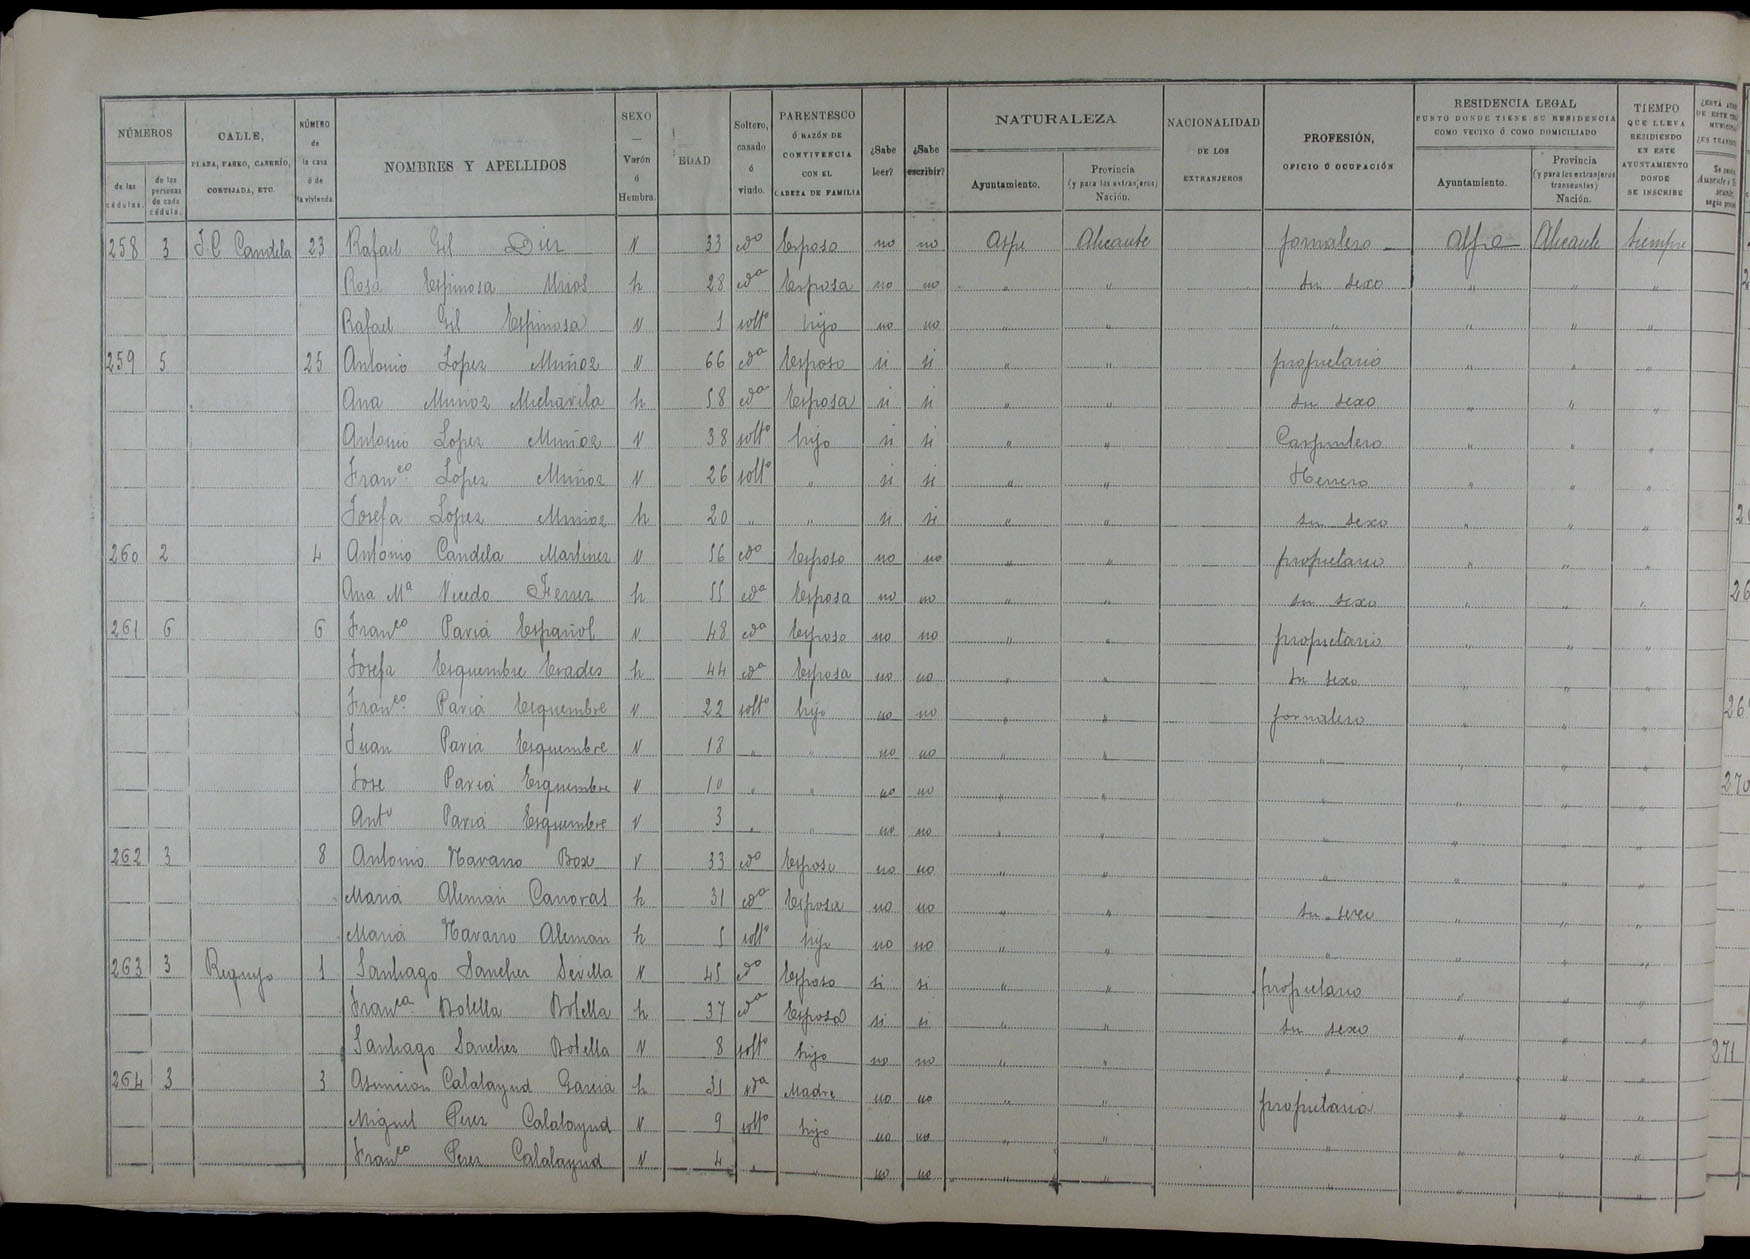 NÚMEROS
de las cédulas.
de las personas de cada cédula.
CALLE,
PLAZA, PASEO, CASERÍO,
CORTIJADA, ETC.
NÚMERO
de
la casa
ó de
la vivienda
NOMBRES Y APELLIDOS
SEXO
—
Varón
ó
Hembra.
EDAD
Soltero,
casado
ó
viudo.
PARENTESCO
Ó RAZÓN DE
CONVIVENCIA
CON EL
CABEZA DE FAMILIA
¿Sabe
leer?
¿Sabe
escribir?
NATURALEZA
Ayuntamiento.
Provincia
(y para los extranjeros)
Nación.
NACIONALIDAD
DE LOS
EXTRANJEROS
PROFESIÓN,
OFICIO Ó OCUPACIÓN
RESIDENCIA LEGAL
PUNTO DONDE TIENE SU RESIDENCIA
COMO VECINO Ó COMO DOMICILIADO
Ayuntamiento.
Provincia
(y para los extranjeros
transeuntes)
Nación.
TIEMPO
QUE LLEVA
RESIDIENDO
EN ESTE
AYUNTAMIENTO
DONDE
SE INSCRIBE
258 3 J. C Candela 23 Rafael Gil Diez V 33 cdo Esposo no no Aspe Alicante jornalero Aspe Alicante siempre
Rosa Espinosa Mriol h 28 cda Esposa no no " " su sexo " " "
Rafael Gil Espinosa V 1 solto hijo no no " " " " " "
259 5 25 Antonio Lopez Muñoz V 66 cdo Esposo si si " " propietario " " "
Ana Muñoz Michavila h 58 cda Esposa si si " " su sexo " " "
Antonio Lopez Muñoz V 38 solto hijo si si " " Carpintero " " "
Franco Lopez Muñoz V 26 solto " si si " " Herrero " " "
Josefa Lopez Muñoz h 20 " " si si " " su sexo " " "
260 2 4 Antonio Candela Martinez V 56 cdo Esposo no no " " propietario " " "
Ana Ma Vicedo Ferrer h 55 cda Esposa no no " " su sexo " " "
261 6 6 Franco Pavia Español V 48 cdo Esposo no no " " propietario " " "
Josefa Esquembre Erades h 44 cda Esposa no no " " su sexo " " "
Franco Pavia Esquembre V 22 solto hijo no no " " jornalero " " "
Juan Pavia Esquembre V 18 " " no no " " " " " "
Jose Pavia Esquembre V 10 " " no no " " " " " "
Anto Pavia Esquembre V 3 " " no no " " " " " "
262 3 8 Antonio Navarro Box V 33 cdo Esposo no no " " " " " "
Maria Aleman Canovas h 31 cda Esposa no no " " su sexo " " "
Maria Navarro Aleman h 5 solto hija no no " " " " " "
263 3 Requejo 1 Santiago Sanchez Sevilla V 45 cdo Esposo si si " " propietario " " "
Franca Botella Botella h 37 cda Esposa si si " " su sexo " " "
Santiago Sanchez Botella V 8 solto hijo no no " " " " " "
264 3 3 Asuncion Calatayud Garcia h 31 vda Madre no no " " propietaria " " "
Miguel Perez Calatayud V 9 solto hijo no no " " " " " "
Franco Perez Calatayud V 4 " " no no " " " " " "
270
271